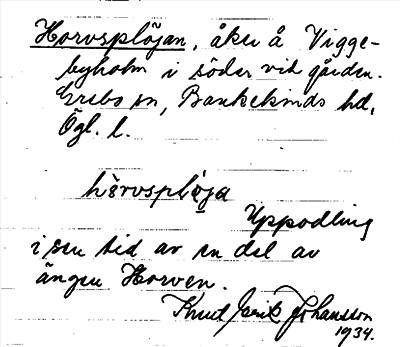 Horvsplöjan, åker å Vigge-
byholm i söder vid gården.
Grebo sn, Bankekinds hd,
Ögl. l.
hŏrvsplö̜ja
Uppodling
i sen tid av en del av
ängen Horven.
Knut Erik Johansson
1934.